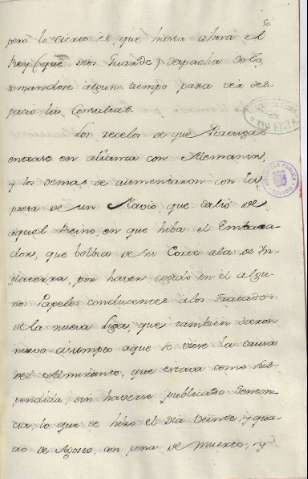 pero lo cierto es que hasta ahora el
Rey (que Dios Guarde) despacha solo
tomandose algun tiempo para ver des
pacio las Consultas.
Los recelos de que Portugal
entrase en alianza con Alemania,
y los demas se aumentaron con la
presa de un Navio que salio de
aquel Reino en que hiba el Embaxa
dor, que bolbia de su Corte a la de In
glaterra, por haver cogido en el algu
nos Papeles concluientes a los Tratados
de la nueva Liga, que tambien dieron
nuevo
la causa
del Almirante, que estaba como sus
pendida, sin haverse publicado Senten
cia, lo que se hizo el Dia Veinte, y qua
tro de Agosto, con pena de muerte, y